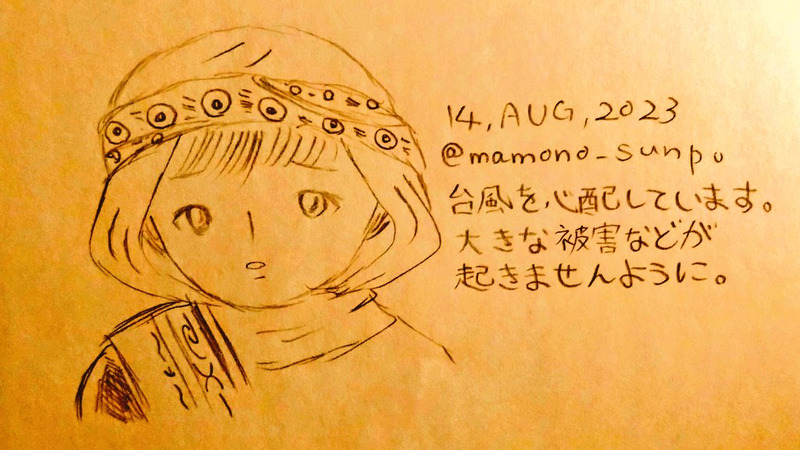 14, AUG, 2023
@mamono_sunpo
台風を心配しています。
大きな被害などが
起きませんように。